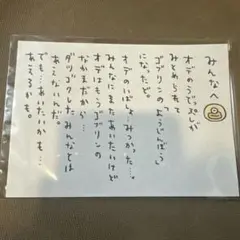 みんなへ
オデのうでっぷしが
みとめられて
ゴブリンのようじんぼう
になったど。
オデのいばしょみつかった…。
みんなにまたあいたいけど
オデはもうゴブリンの
なかまだから…
ダリゴクした みんなとは
あえないんだ。
でも…あいたいかも…
あえるかも。